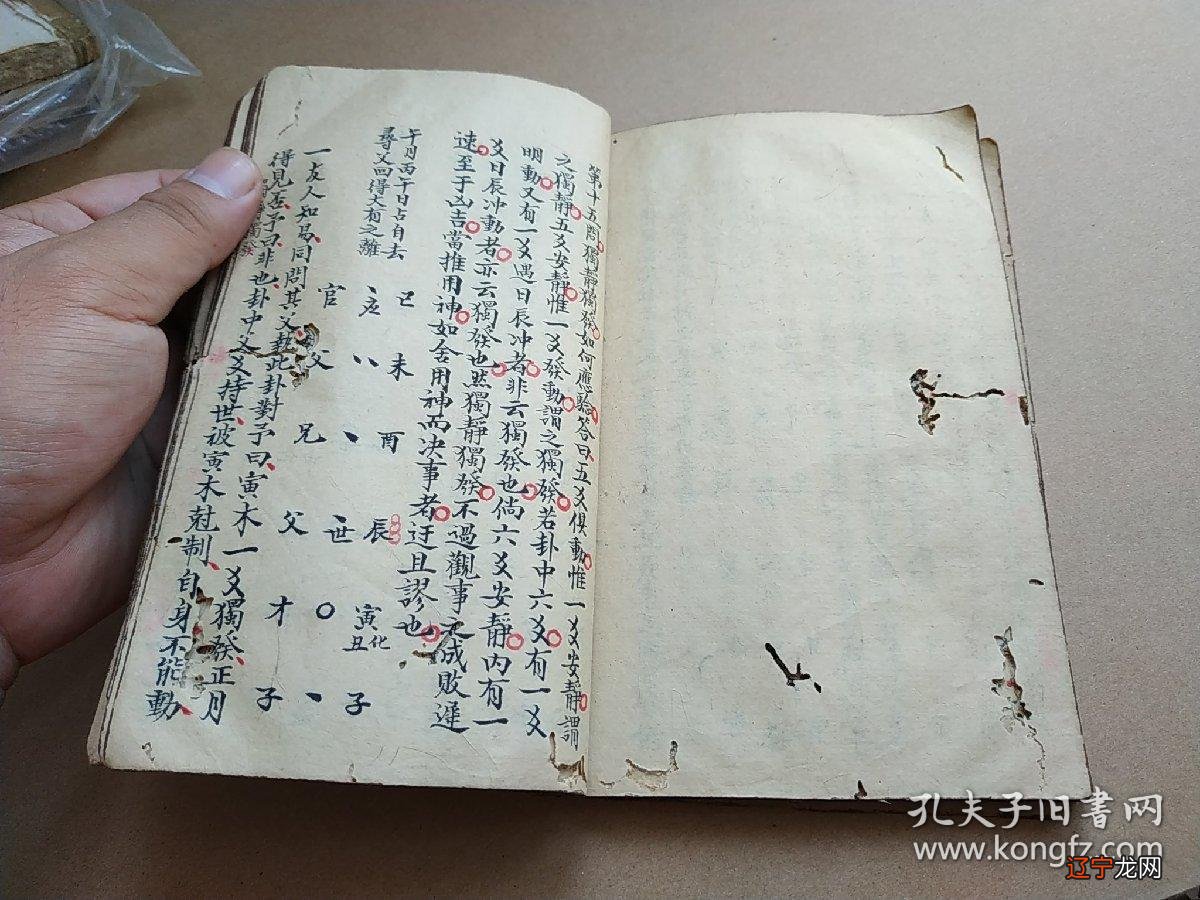 第十五問獨靜獨發如何應驗答曰五爻俱動惟一爻安靜謂
之獨靜五爻安靜惟一爻發動謂之獨發若卦中六爻有一爻
明動又有一爻遇日辰冲者非云獨發也倘六爻安靜內有一
爻日辰冲動者亦云獨發也然獨靜獨發不過觀事之成敗遲
速至于凶吉當推用神如舍用神而决事者迂且謬也
午月丙午日占自去
尋父回得大有之離
官 應 巳
父 未
兄 酉
父 世 辰
才 〇 寅化丑
子 子
一友人知易同問其父執此卦對予曰寅木一爻獨發正月
得見否予曰非也卦中父爻持世被寅木尅制自身不能動
孔夫子旧書网
www.kongfz.com
辽宁龙网